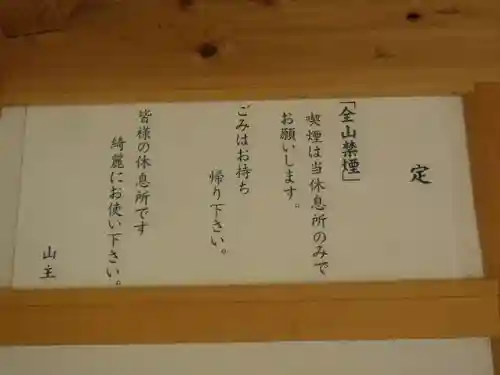 定
「全山禁煙」
喫煙は当休息所のみで
お願いします。
ごみはお持ち
帰り下さい。
皆様の休息所です
綺麗にお使い下さい。
山主